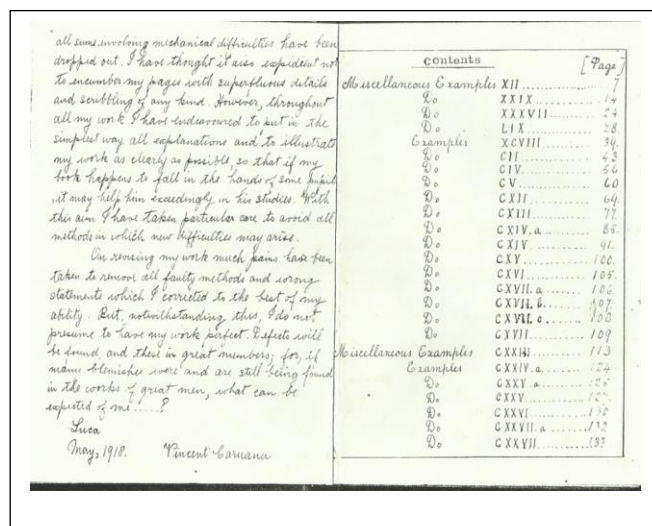 all sums involving mechanical difficulties have been
dropped out. I have thought it also expedient not
to encumber my pages with superfluous details
and scribbling of any kind. However, throughout
all my work I have endeavoured to put in the
simplest way all explanations and to illustrate
my work as clearly as possible, so that if my
book happens to fall in the hands of some pupil
, it may help him exceedingly in his studies. With
this aim I have taken particular care to avoid all
methods in which new difficulties may arise.
On revising my work much pains have been
taken to remove all faulty methods and wrong
statements which I corrected to the best of my
ability. But, notwithstanding this, I do not
presume to have my work perfect. Defects will
be found, and these in great numbers; for, if
many blemishes were and are still being found
in the works of great men, what can be
expected of me.....?
Luca
May, 1918. Vincent Caruana
contents [Page]
Miscellaneous Examples XII 7
Do XXIX 14
Do XXXVII 24
Do LIX 28
Examples XCVIII 39
Do CII 43
Do CIV 56
Do CV 60
Do CXII 69
Do CXIII 77
Do CXIV.a 85
Do CXIV 91
Do CXV 100
Do CXVI 105
Do CXVII.a 106
Do CXVII.b 107
Do CXVII.c 108
Do CXVII 109
Miscellaneous Examples CXXIII 113
Examples CXXIV.a 124
Do CXXV.a 126
Do CXXV 127
Do CXXVI 130
Do CXXVII.a 132
Do CXXVII 133